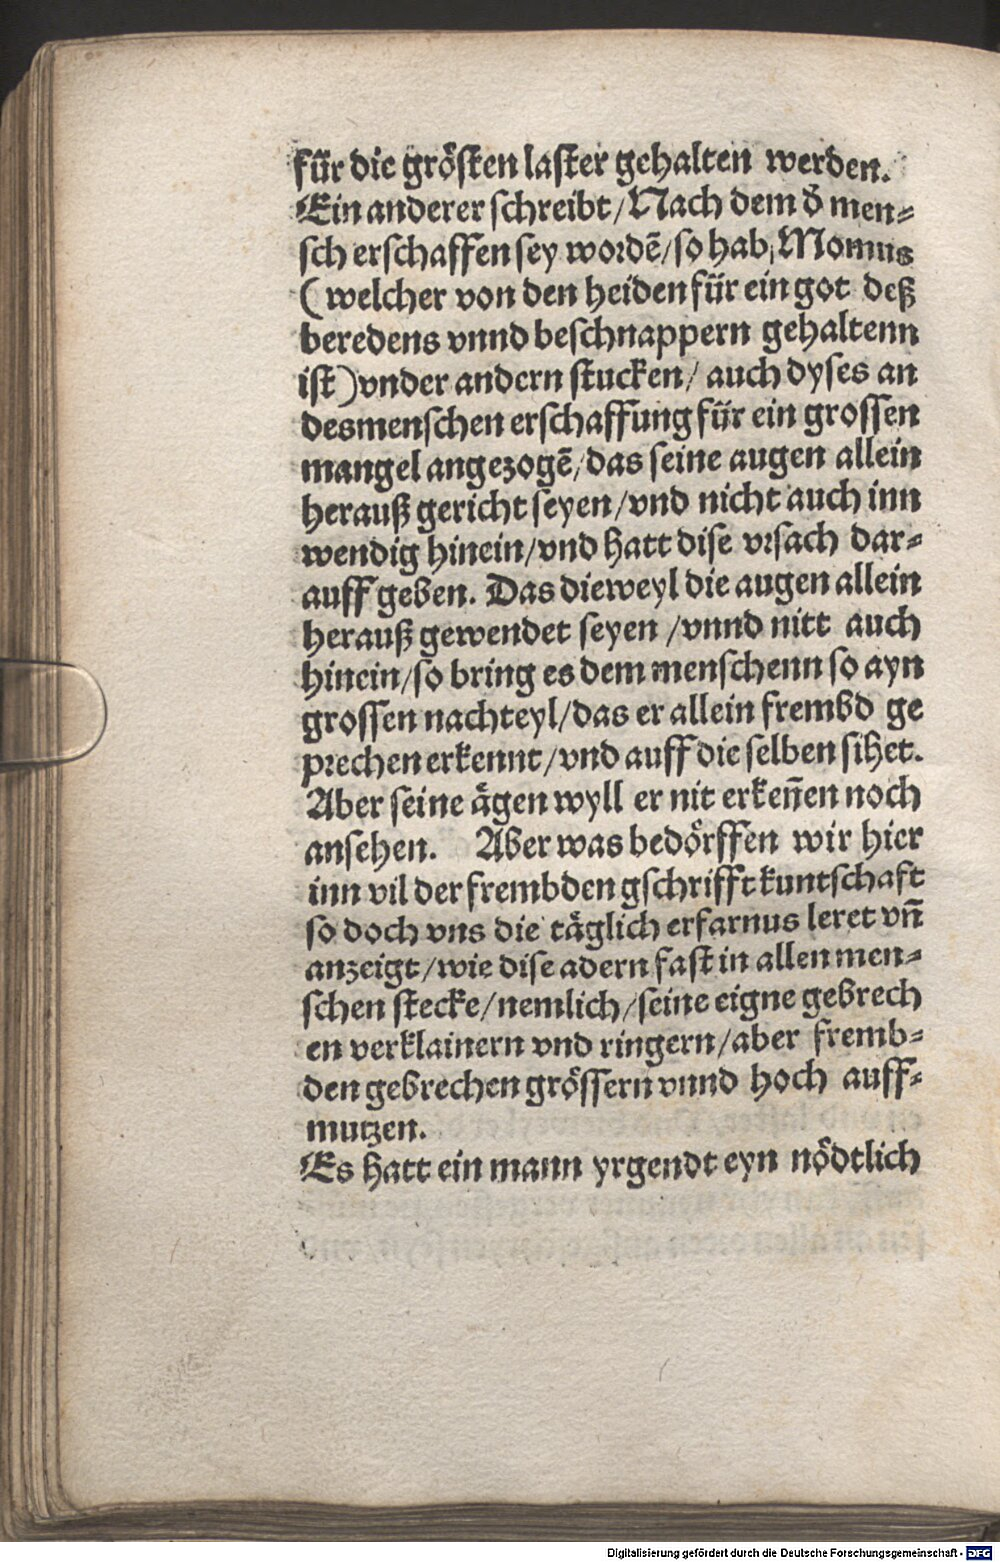 für die grösten laster gehalten werden.
Ein anderer schreibt/Nach dem d̕ men⸗
sch erschaffen sey wordē/so hab, Momus
(welcher von den heiden für ein got deß
beredens vnnd beschnappern gehaltenn
ist) vnder andern stucken/ auch dyses an
des menschen erschaffung für ein grossen
mangel angezogē/das seine augen allein
herauß gericht seyen/vnd nicht auch inn
wendig hinein/vnd hatt dise vrsach dar⸗
auff geben. Das dieweyl die augen allein
herauß gewendet seyen /vnnd nitt auch
hinein/so bring es dem menschenn so ayn
grossen nachteyl/das er allein frembd ge
prechen erkennt/vnd auff die selben sihet.
Aber seine ägen wyll er nit erkeñen noch
ansehen. Aber was bedörffen wir hier
inn vil der frembden gschrifft kuntschaft
so doch vns die täglich erfarnus leret vñ
anzeigt/wie dise adern fast in allen men⸗
schen stecke/nemlich/seine eigne gebrech
en verklainern vnd ringern/aber fremb⸗
den gebrechen grössern vnnd hoch auff⸗
mutzen.
Es hatt ein mann yrgendt eyn nödtlich
Digitalisierung gefördert durch die Deutsche Forschungsgemeinschaft - DFG